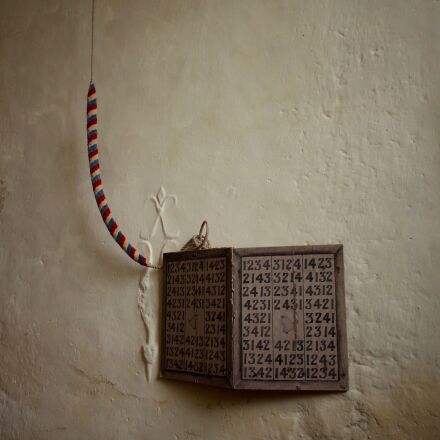 1234 3124 1423
2143 3214 4132
2413 2341 4312
4231 2431 3421
4321 3241
3412 2314
3142 4213 2134
1324 4123 1243
1342 1432 1234
1234 3124 1423
2143 3214 4132
2413 2341 4312
4231 2431 3421
4321 3241
3412 2314
3142 4213 2134
1324 4123 1243
1342 1432 1234